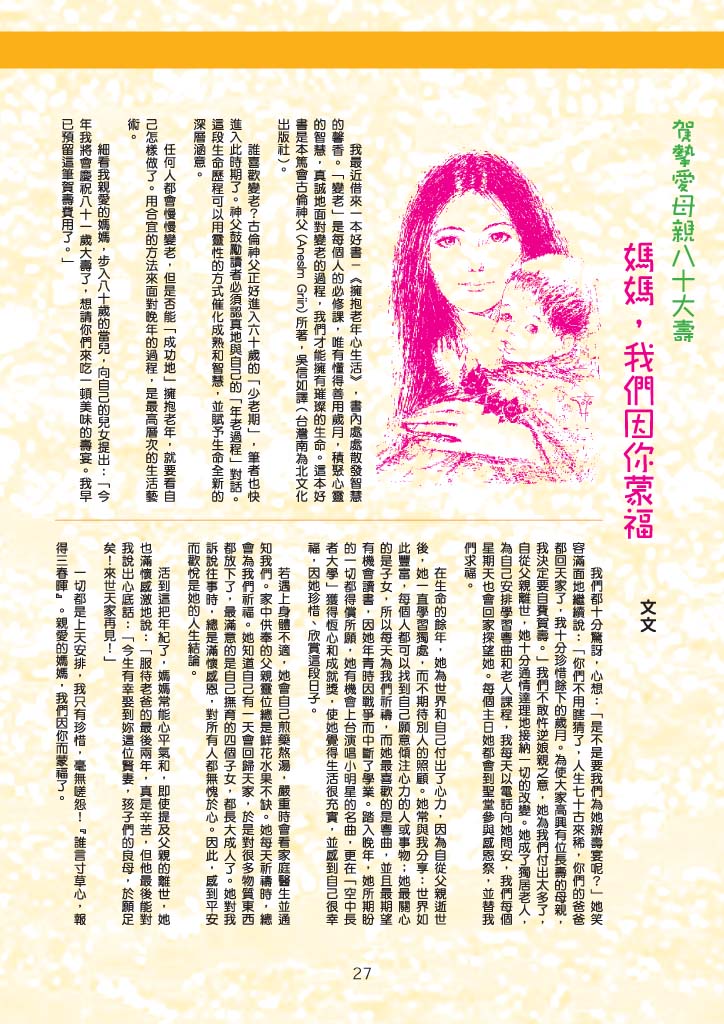 賀摯愛母親八十大壽
媽媽，我們因你蒙福
文文
我最近借來一本好書－《擁抱老年心生活》，書內處處散發智慧
的馨香。「變老」是每個人的必修課，唯有懂得善用歲月，積聚心靈
的智慧，真誠地面對變老的過程，我們才能擁有璀璨的生命。這本好
書是本篤會古倫神父(Aneslm Grin)所著，吳信如譯（台灣南為北文化
出版社）。
誰喜歡變老？古倫神父正好進入六十歲的「少老期」，筆者也快
進入此時期了。神父鼓勵讀者必須認真地與自己的「年老過程」對話。
這段生命歷程可以用靈性的方式催化成熟和智慧，並賦予生命全新的
深層涵意。
任何人都會慢慢變老，但是否能「成功地」擁抱老年，就要看自
己怎樣做了。用合宜的方法來面對晚年的過程，是最高層次的生活藝
術。
細看我親愛的媽媽，步入八十歲的當兒，向自己的兒女提出：「今
年我將會慶祝八十一歲大壽了，想請你們來吃一頓美味的壽宴。我早
已預留這筆賀壽費用了。」
我們都十分驚訝，心想：「是不是要我們為她辦壽宴呢？」她笑
容滿面地繼續說：「你們不用瞎猜了，人生七十古來稀，你們的爸爸
都回天家了，我十分珍惜餘下的歲月。為使大家高興有位長壽的母親，
我決定要自費賀壽。」我們不敢忤逆娘親之意，她為我們付出太多了，
自從父親離世，她十分通情達理地接納一切的改變。她成了獨居老人，
為自己安排學習粵曲和老人課程，我每天以電話向她問安，我們每個
星期天也會回家探望她。每個主日她都會到聖堂參與感恩祭，並替我
們求福。
在生命的餘年，她為世界和自己付出了心力，因為自從父親逝世
後，她一直學習獨處，而不期待別人的照顧。她常與我分享：世界如
此豐富，每個人都可以找到自己願意傾注心力的人或事物；她最關心
的是子女，所以每天為我們祈禱，而她最喜歡的是粵曲，並且最期望
有機會讀書，因她年青時因戰爭而中斷了學業。踏入晚年，她所期盼
的一切都得償所願，她有機會上台演唱小明星的名曲，更在「空中長
者大學」獲得恆心和成就獎，使她覺得生活很充實，並感到自己很幸
福，因她珍惜、欣賞這段日子。
若遇上身體不適，她會自己煎藥熬湯，嚴重時會看家庭醫生並通
知我們。家中供奉的父親靈位總是鮮花水果不缺。她每天祈禱時，總
會為我們祈福。她知道自己有一天會回歸天家，於是對很多物質東西
都放下了，最滿意的是自己撫育的四個子女，都長大成人了。她對我
訴說往事時，總是滿懷感恩，對所有人都無愧於心。因此，感到平安
而歡悅是她的人生結論。
活到這把年紀了，媽媽常能心平氣和，即使提及父親的離世，她
也滿懷感激地說：「服待老爸的最後兩年，真是辛苦，但他最後能對
我說出心底話：「今生有幸娶到妳這位賢妻，孩子們的良母，於願足
矣！來世天家再見！」
一切都是上天安排，我只有珍惜，毫無嗟怨！『誰言寸草心，報
得三春暉』。親愛的媽媽，我們因你而蒙福了。
27